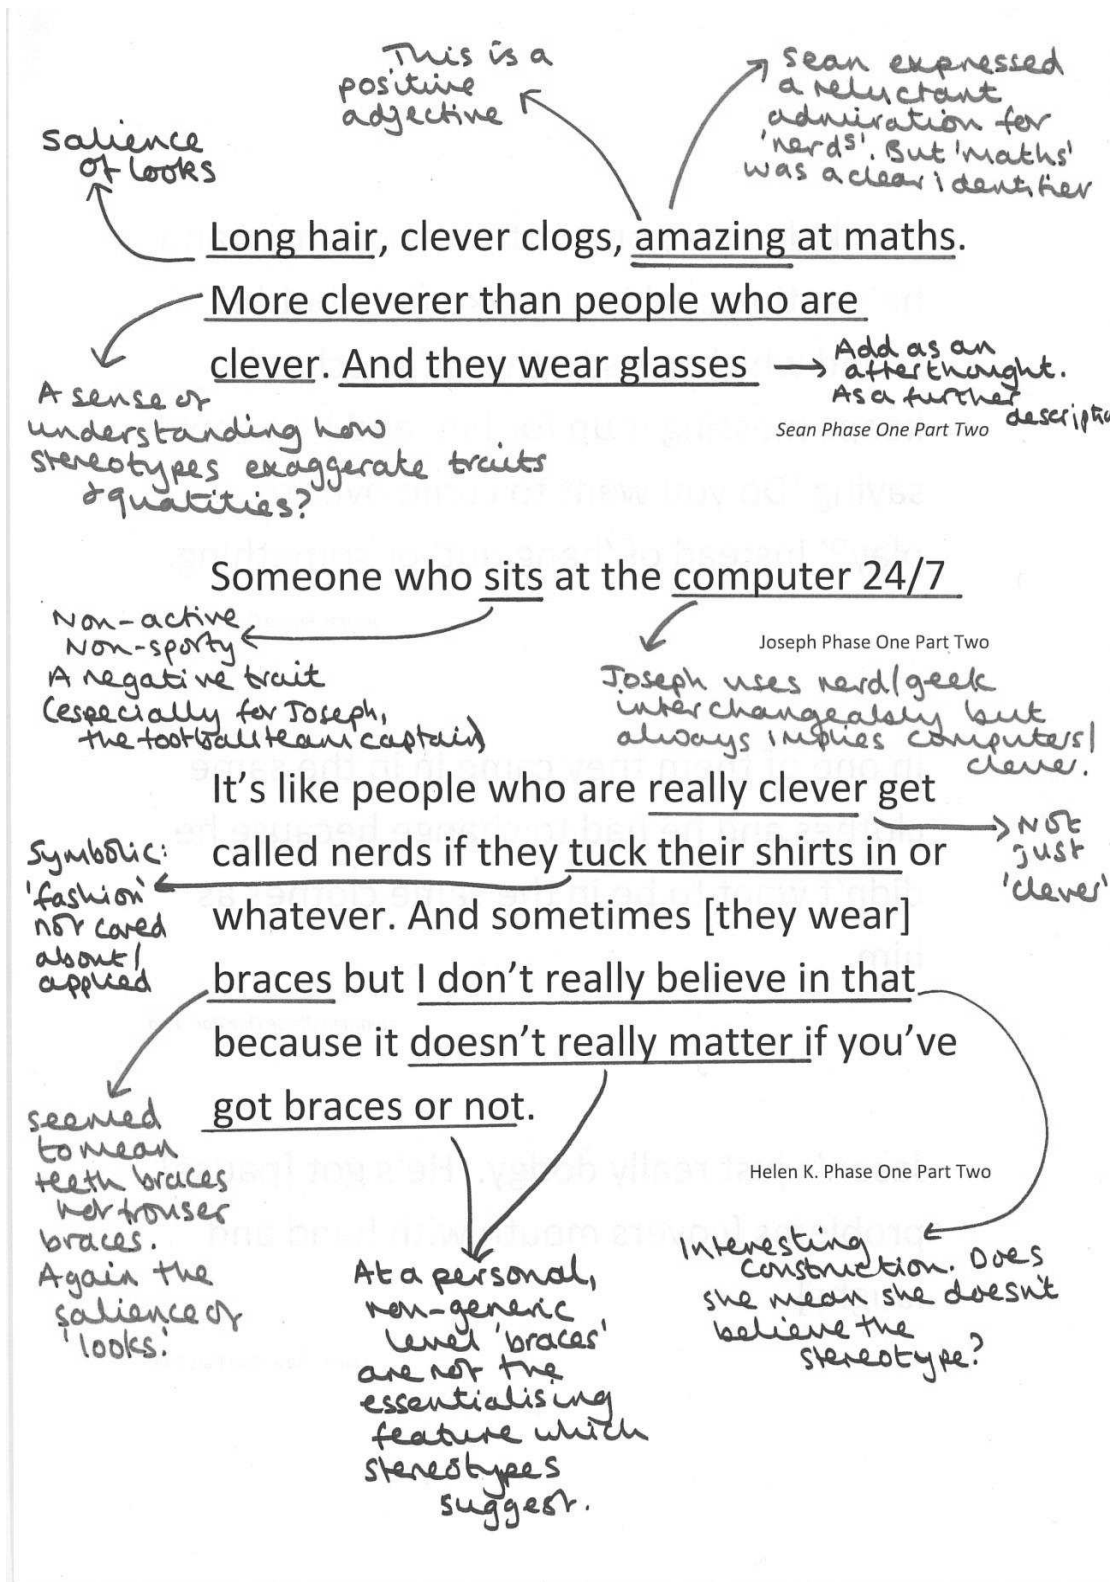 This is a
positive
adjective
Sean expressed
a reluctant
admiration for
'nerds'. But 'maths'
was a clear identifier
Salience
of looks
Long hair, clever clogs, amazing at maths.
More cleverer than people who are
clever. And they wear glasses
Add as an
afterthought.
As a further
descripti
Sean Phase One Part Two
A sense of
understanding how
stereotypes exaggerate traits
& quatities?
Someone who sits at the computer 24/7
Joseph Phase One Part Two
Non-active
Non-sporty
A negative trait
(especially for Joseph,
the football team captain)
Joseph uses nerd/geek
interchangeably but
always implies computers/
clever.
It's like people who are really clever get
called nerds if they tuck their shirts in or
whatever. And sometimes [they wear]
braces but I don't really believe in that
because it doesn't really matter if you've
got braces or not.
Helen K. Phase One Part Two
Not
just
'clever'
Symbolic:
'fashion'
not cared
about/
applied
seemed
to mean
teeth braces
not trouser
braces.
Again the
salience of
'looks'.
At a personal,
non-generic
level 'braces'
are not the
essentialising
feature which
stereotypes
suggest.
Interesting
construction. Does
she mean she doesn't
believe the
stereotype?